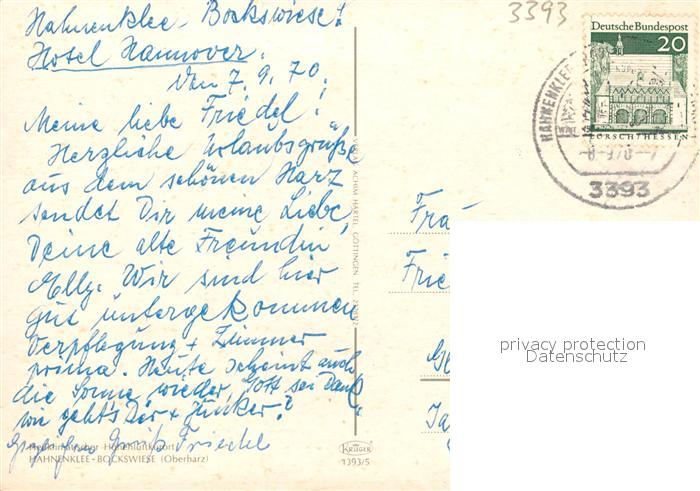 Hahnenklee-Bockswiese!
Hotel Hannover.
Den 7.9.70.
Meine liebe Friedel!
Herzliche Urlaubsgrüße
aus dem schönen Harz
sendet Dir meine Liebe,
Deine alte Freundin
Elly. Wir sind hier
gut untergekommen
Verpflegung + Zimmer
prima. Heute scheint auch
die Sonne wieder, Gott sei Dank.
wie geht's Dir + Junker?
Gruß Friedel
Heilklimatischer Höhenluftkurort
HAHNENKLEE-BOCKSWIESE (Oberharz)
ACHIM HARTEL, GÖTTINGEN, TEL.
KRÜGER
1393/5
3393
Deutsche Bundespost
20
LORSCH/HESSEN
HAHNENKLEE
3393
Frau
Frie
Ja
privacy protection
Datenschutz